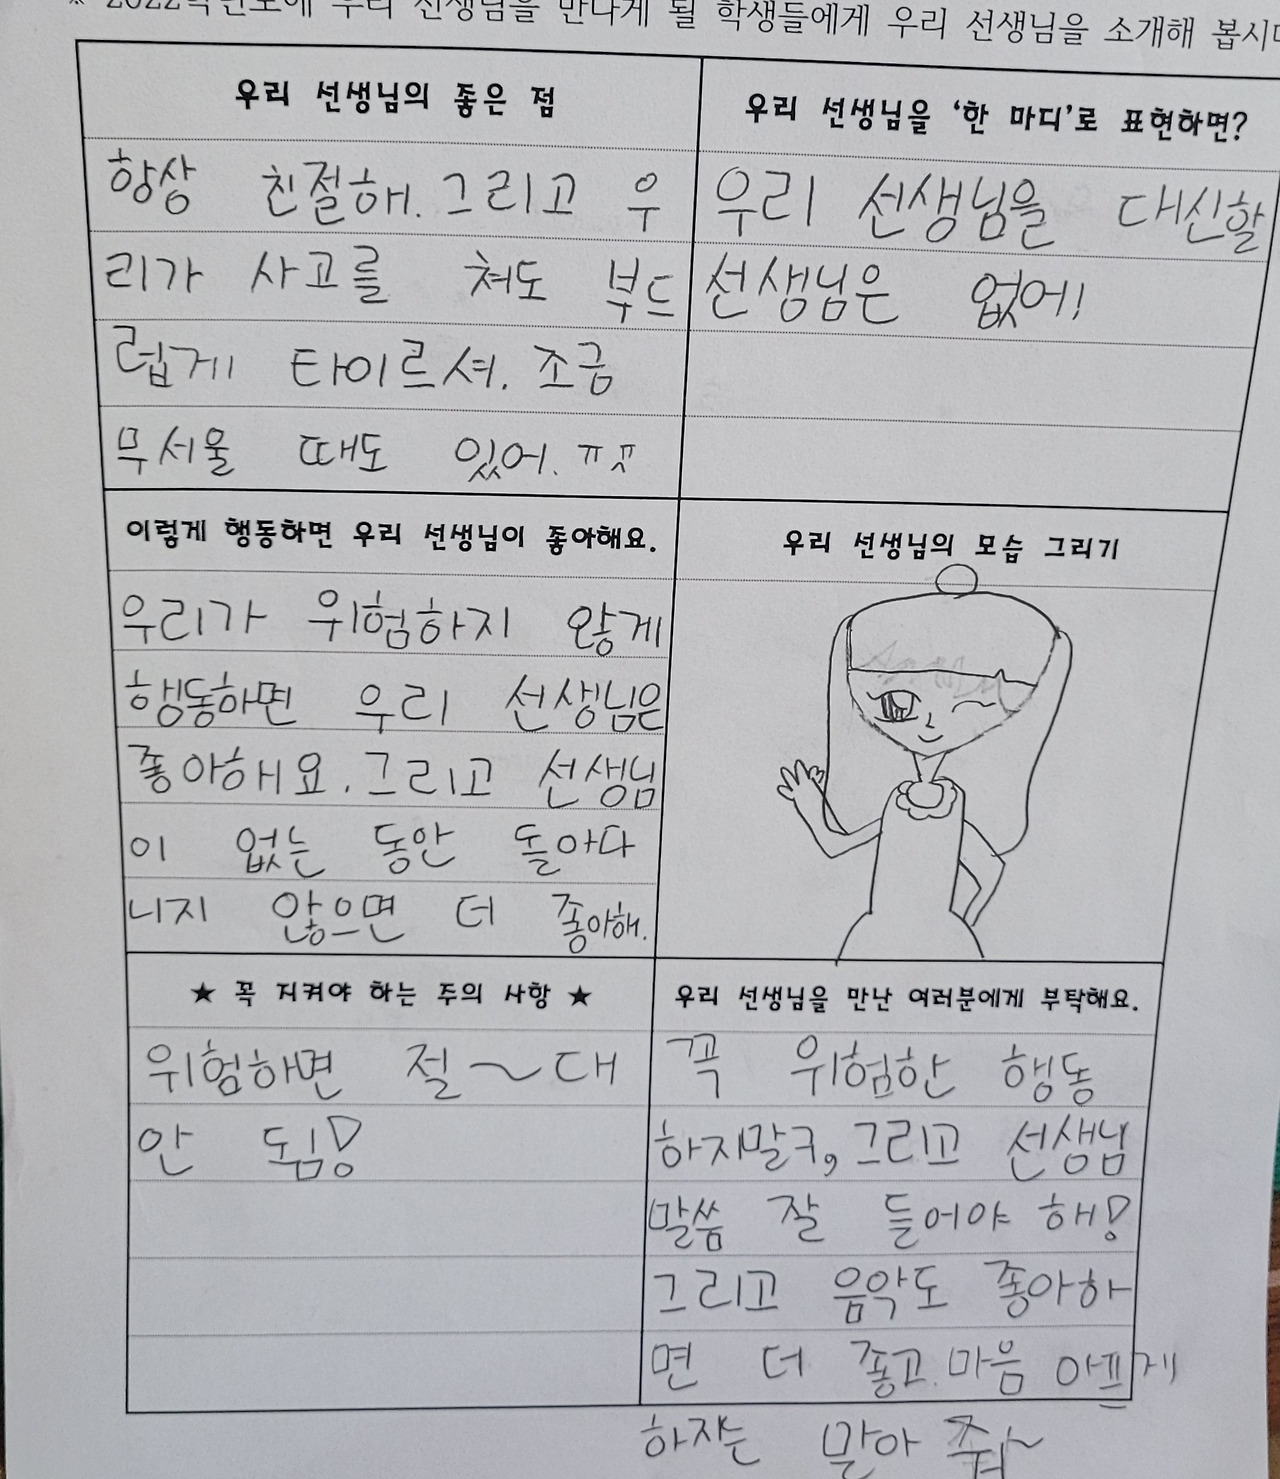 ※ 2022학년도에 우리 선생님을 만나게 될 학생들에게 우리 선생님을 소개해 봅시다
우리 선생님의 좋은 점
항상 친절해. 그리고 우
리가 사고를 쳐도 부드
럽게 타이르셔. 조금
무서울 때도 있어. ㅠㅠ
우리 선생님을 ‘한 마디’로 표현하면?
우리 선생님을 대신할
선생님은 없어!
이렇게 행동하면 우리 선생님이 좋아해요.
우리가 위험하지 않게
행동하면 우리 선생님은
좋아해요. 그리고 선생님
이 없는 동안 돌아다
니지 않으면 더 좋아해.
우리 선생님의 모습 그리기
★ 꼭 지켜야 하는 주의 사항 ★
위험하면 절~대
안 됨!
우리 선생님을 만난 여러분에게 부탁해요.
꼭 위험한 행동
하지말구, 그리고 선생님
말씀 잘 들어야 해!
그리고 음악도 좋아하
면 더 좋고. 마음 아프게
하지는 말아 줘~